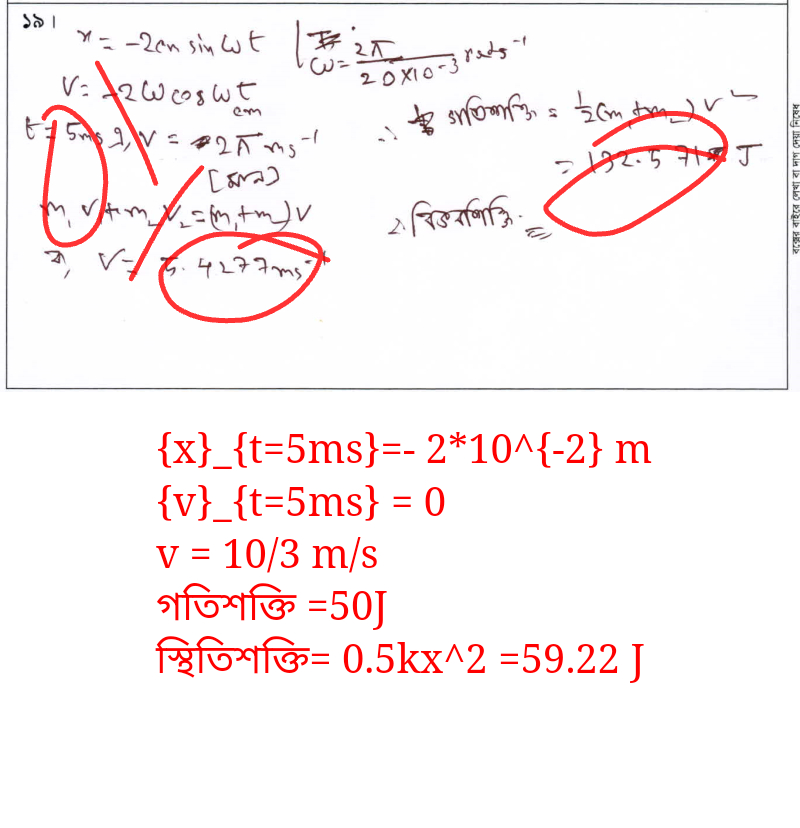 ১৯।
x = -2cm sin ωt
ω = 2π / 20×10-3 rads-1
v = -2ω cos ωt
cm
t = 5ms এ, v = 2π ms-1
[মান]
m1v1+m2v2=(m1+m2)v
বা, v = 5.4277ms-1
∴ গতিশক্তি = 1/2(m1+m2)v2
= 132.571 J
∴ স্থিতিশক্তি =
বক্সের বাইরে লেখা বা দাগ দেয়া নিষেধ
{x}_{t=5ms}=- 2*10^{-2} m
{v}_{t=5ms} = 0
v = 10/3 m/s
গতিশক্তি =50J
স্থিতিশক্তি= 0.5kx^2 =59.22 J